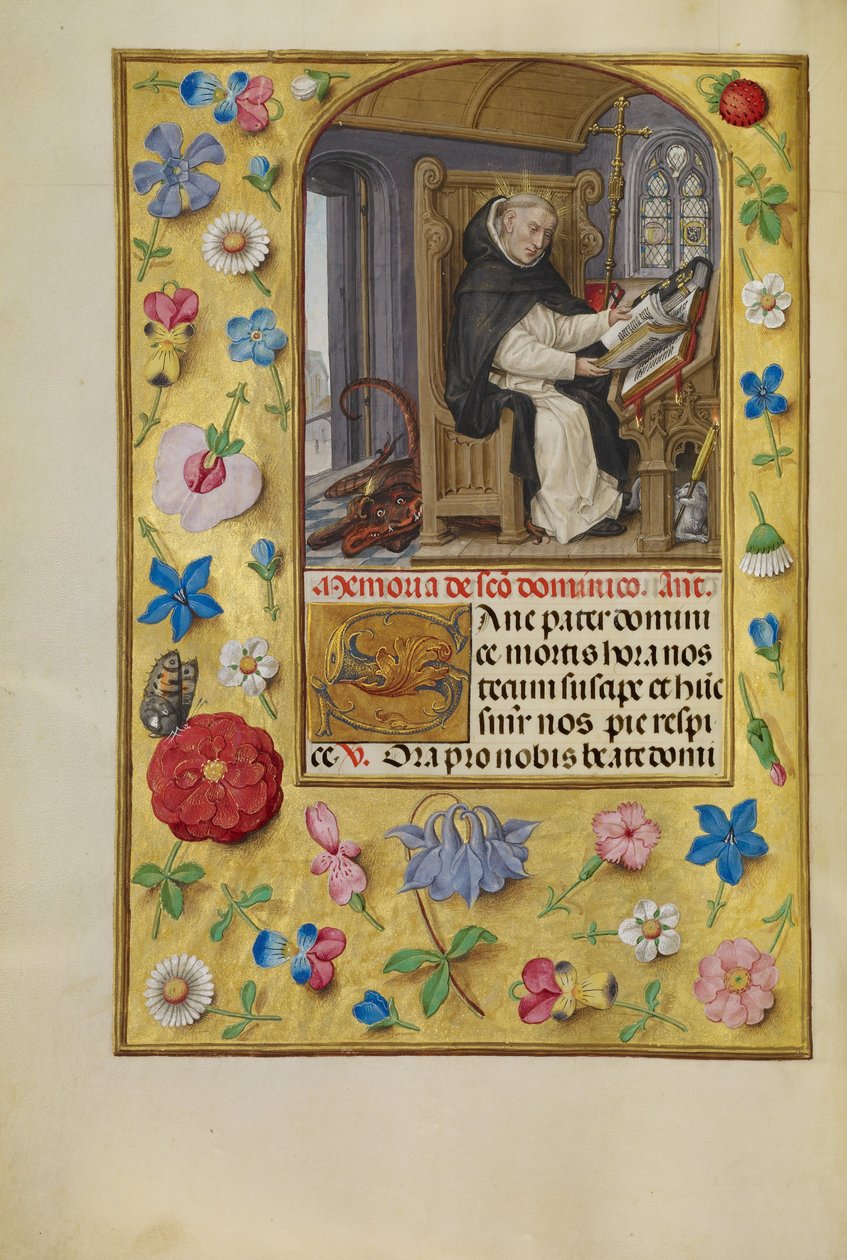 Memoria de scō dominico. Añt.
Ane pater domini
ce mortis hora nos
tecum suscipe et hūc
simꝑ nos pie respi-
ce. V. Ora pro nobis beate domi